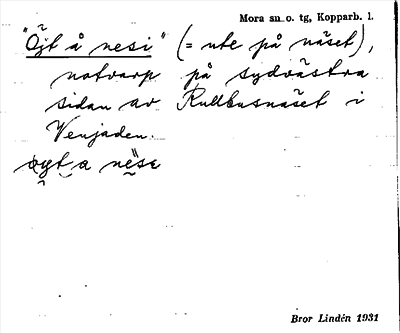 Mora sn. o. tg, Kopparb. l.
"Öjt å nesi" (= ute på näset),
notvarp på sydvästra
sidan av Rullbusnäset i
Venjaden.
Bror Lindén 1931